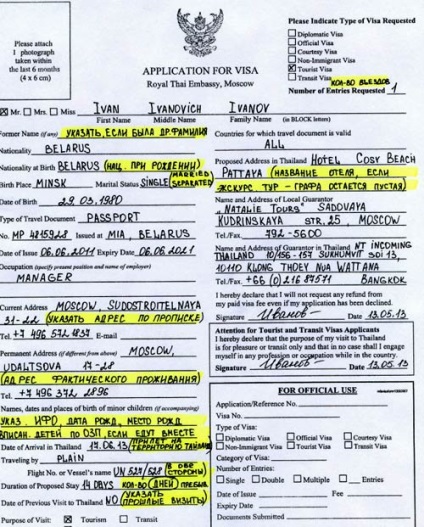 Please attach
1 photograph
taken within
the last 6 months
(4 x 6 cm)
APPLICATION FOR VISA
Royal Thai Embassy, Moscow
Please Indicate Type of Visa Requested
Diplomatic Visa
Official Visa
Courtesy Visa
Non-Immigrant Visa
Tourist Visa
Transit Visa КОЛ-ВО ВЪЕЗДОВ
Number of Entries Requested 1
Mr. Mrs. Miss IVAN IVANOVICH IVANOV
First Name Middle Name Family (in BLOCK letters)
Former Name (if any) УКАЗАТЬ, ЕСЛИ БЫЛА ДР. ФАМИЛИЯ
Nationality BELARUS
Nationality at Birth BELARUS (НАЦ. ПРИ РОЖДЕНИИ)
Birth Place MINSK Marital Status SINGLE (MARRIED, SEPARATED)
Date of Birth 29.03.1980
Type of Travel Document PASSPORT
No. MP 4815928 Issued at MIA, BELARUS
Date of Issue 06.06.2011 Expiry Date 06.06.2021
Occupation (specify present position and name of employer)
MANAGER
Current Address MOSCOW, SUDOSTROITELNAYA
31-22 (УКАЗАТЬ АДРЕС ПО ПРОПИСКЕ)
Tel. +7 496 572 1837 E-mail
Permanent Address (if different from above) MOSCOW,
UDALTSOVA 17-28
(АДРЕС ФАКТИЧЕСКОГО ПРОЖИВАНИЯ)
Tel. +7 496 372 2896
Names, dates and places of birth of minor children (if accompanying)
УКАЗ. ИФО, ДАТА РОЖД, МЕСТО РОЖД
ВПИСАН. ДЕТЕЙ ПО ОЗП, ЕСЛИ ЕДУТ ВМЕСТЕ
Date of Arrival in Thailand 17.06.13 (ПРИЛЕТ НА ТЕРРИТОРИЮ ТАЙЛАНДА
Traveling by PLAIN
Flight No. or Vessel's name UN 527/528 (В ОБЕ СТОРОНЫ)
Duration of Proposed Stay 14 DAYS КОЛ-ВО (ДНЕЙ) ПРЕБЫВ
Date of Previous Visit to Thailand NO (УКАЗАТЬ ПРОШЛЫЕ ВИЗИТЫ)
Purpose of Visit: Tourism Transit
Countries for which travel document is valid
ALL
Proposed Address in Thailand HOTEL COSY BEACH
PATTAYA (НАЗВАНИЕ ОТЕЛЯ, ЕСЛИ
ЭКСКУРС. ТУР - ГРАФА ОСТАЕТСЯ ПУСТАЯ)
Name and Address of Local Guarantor
"NATALIE TOURS" SADOVAYA
KUDRINSKAYA STR, 25, MOSCOW
Tel./Fax 792-5600
Name and Address of Guarantor in Thailand NT INCOMING
THAILAND 10/156-157 SUKHUMVIT SOI 13,
10110 KLONG THOEY NUA WATTANA
Tel./Fax +66 (0) 216 87571 BANGKOK
I hereby declare that I will not request any refund from
my paid visa fee even if my application has been declined.
Signature Иванов Date 13.05.13
Attention for Tourist and Transit Visas Applicants
I hereby declare that the purpose of my visit to Thailand
is for pleasure or transit only and that in no case shall I engage
myself in any profession or occupation while in the country.
Signature Иванов Date 13.05.13
FOR OFFICIAL USE
Application/Reference No.
Visa No.
Type of Visa:
Diplomatic Visa Official Visa Courtesy Visa
Non-Immigrant Visa Tourist Visa Transit Visa
Category of Visa:
Number of Entries:
Single Double Multiple Entries
Date of Issue Fee
Expiry Date
Documents Submitted